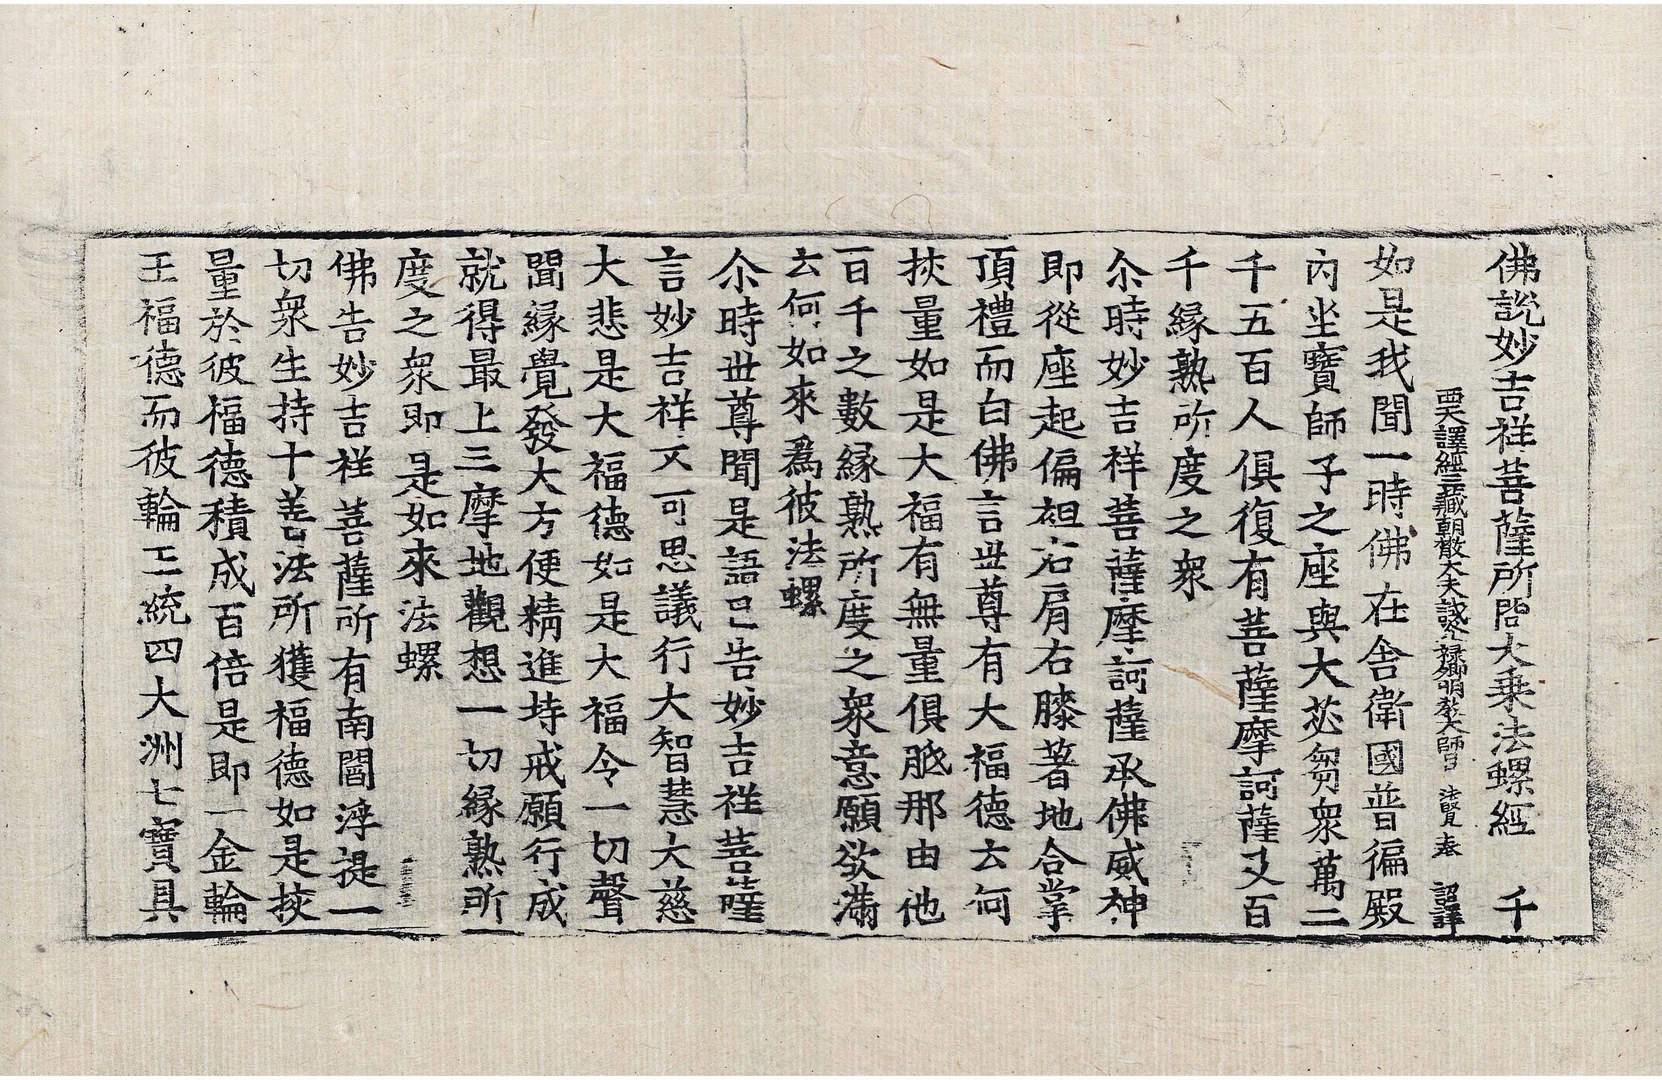 佛說妙吉祥菩薩所問大乘法螺經　千
西天譯經三藏朝散大夫試光祿卿明教大師臣　法賢　奉　詔譯
如是我聞一時佛在舍衛國普徧殿
內坐寶師子之座與大苾芻衆萬二
千五百人俱復有菩薩摩訶薩又百
千緣熟所度之衆
尒時妙吉祥菩薩摩訶薩承佛威神
即從座起偏袒右肩右膝著地合掌
頂禮而白佛言世尊有大福德云何
挍量如是大福有無量俱胝那由他
百千之數緣熟所度之衆意願欲滿
云何如來爲彼法螺
尒時世尊聞是語已告妙吉祥菩薩
言妙吉祥不可思議行大智慧大慈
大悲是大福德如是大福令一切聲
聞緣覺發大方便精進持戒願行成
就得最上三摩地觀想一切緣熟所
度之衆即是如來法螺
佛告妙吉祥菩薩所有南閻浮提一
切衆生持十善法所獲福德如是挍
量於彼福德積成百倍是即一金輪
王福德而彼輪王統四大洲七寶具